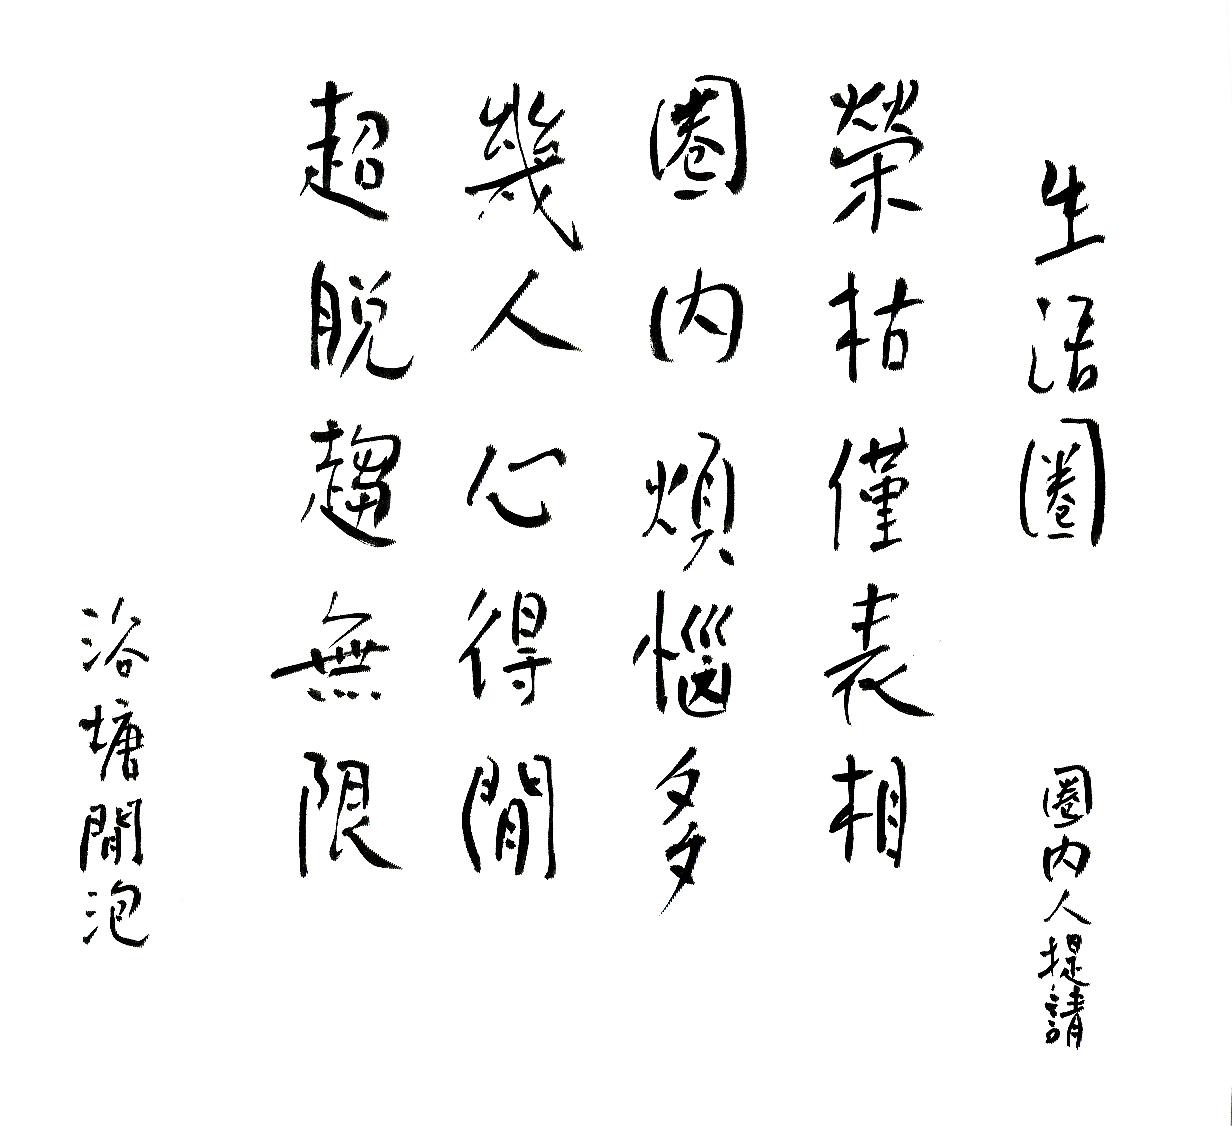 生活圈
圈内人提請
榮枯僅表相
圈内煩惱多
幾人心得閒
超脱趨無限
浴塘閒泡